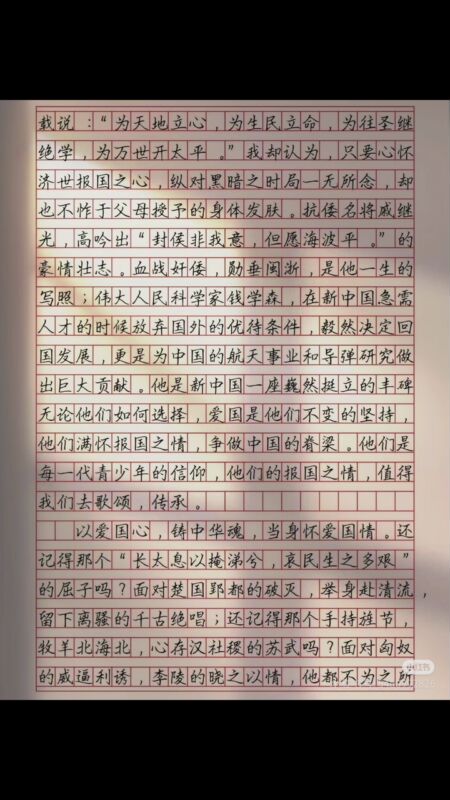 载说：“为天地立心，为生民立命，为往圣继
绝学，为万世开太平。”我却认为，只要心怀
济世报国之心，纵对黑暗之时局一无所念，却
也不怍于父母授予的身体发肤。抗倭名将戚继
光，高吟出“封侯非我意，但愿海波平。”的
豪情壮志。血战奸倭，勋垂闽浙，是他一生的
写照；伟大人民科学家钱学森，在新中国急需
人才的时候放弃国外的优待条件，毅然决定回
国发展，更是为中国的航天事业和导弹研究做
出巨大贡献。他是新中国一座巍然挺立的丰碑
无论他们如何选择，爱国是他们不变的坚持，
他们满怀报国之情，争做中国的脊梁。他们是
每一代青少年的信仰，他们的报国之情，值得
我们去歌颂，传承。
以爱国心，铸中华魂，当身怀爱国情。还
记得那个“长太息以掩涕兮，哀民生之多艰”
的屈子吗？面对楚国郢都的破灭，举身赴清流，
留下离骚的千古绝唱；还记得那个手持旌节，
牧羊北海北，心存汉社稷的苏武吗？面对匈奴
的威逼利诱，李陵的晓之以情，他都不为之所
小红书